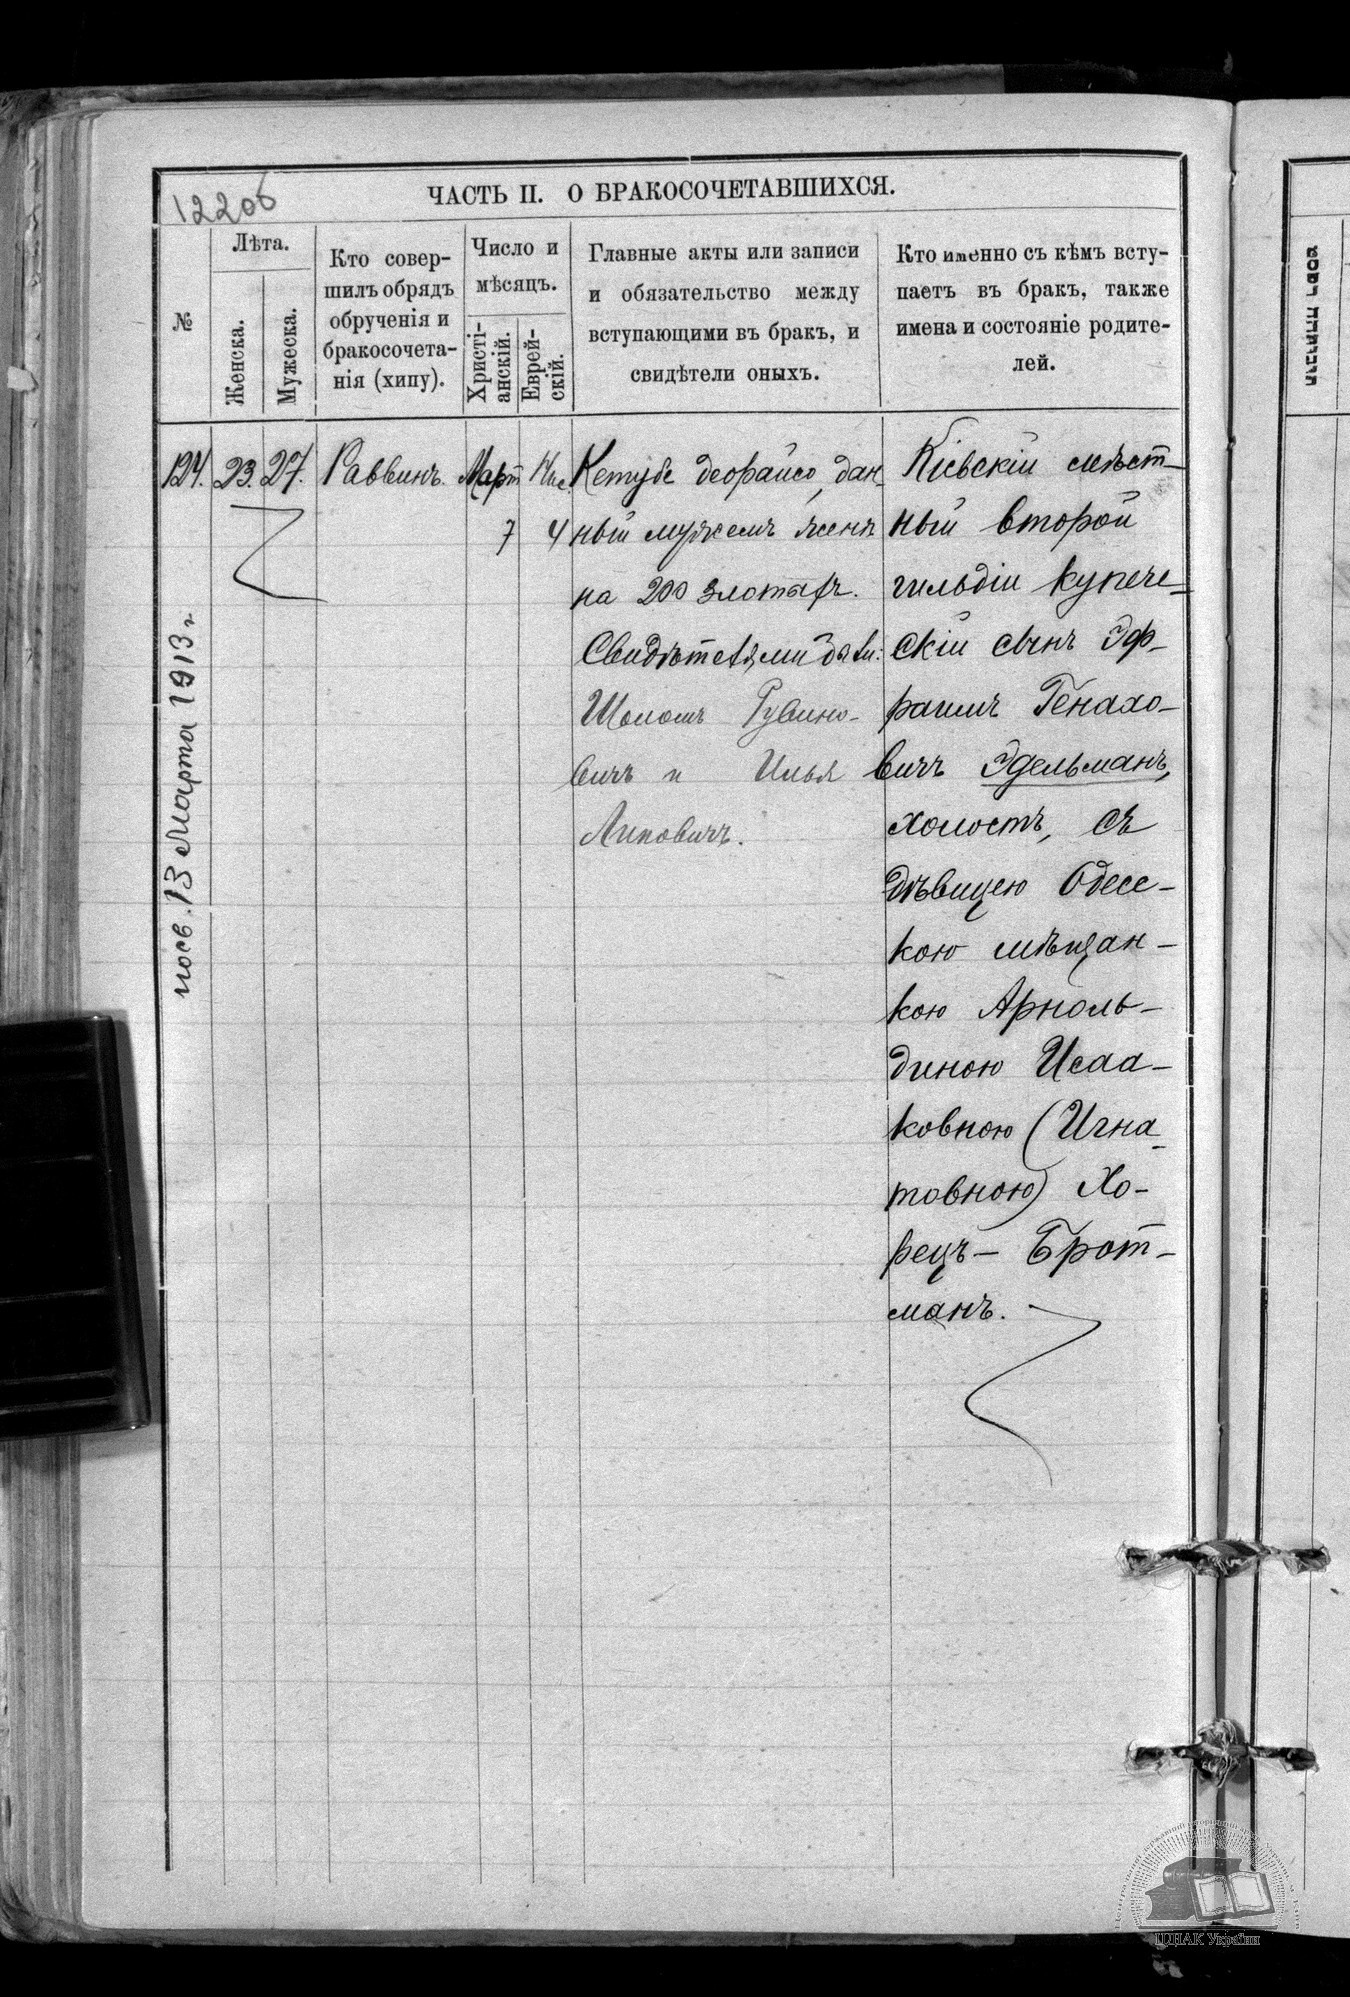 12206
ЧАСТЬ II. О БРАКОСОЧЕТАВШИХСЯ.
№
Лѣта.
Женска.
Мужеска.
Кто совер-
шилъ обрядъ
обрученія и
бракосочета-
нія (хипу).
Число и
мѣсяцъ.
Христі-
анскій.
Еврей-
скій.
Главные акты или записи
и обязательство между
вступающими въ бракъ, и
свидѣтели оныхъ.
Кто именно съ кѣмъ всту-
паетъ въ бракъ, также
имена и состояніе родите-
лей.
124. 23. 27. Раввинъ. Март Нис.
7 4
Кетубе деорайсо, дан-
ный мужемъ женѣ
на 200 злотыхъ.
Свидѣтелями были:
Шоломъ Рувино-
вичъ и Илья
Липовичъ.
Кіевскій мѣст-
ный второй
гильдіи купече-
скій сынъ Эф-
раимъ Генахо-
вичъ Эдельманъ,
холостъ, съ
дѣвицею Одесс-
кою мѣщан-
кою Арноль-
диною Исаа-
ковною (Игна-
товною) Хо-
рецъ - Бротт-
манъ.
посв. 13 Марта 1913 г.
ЦДІАК України